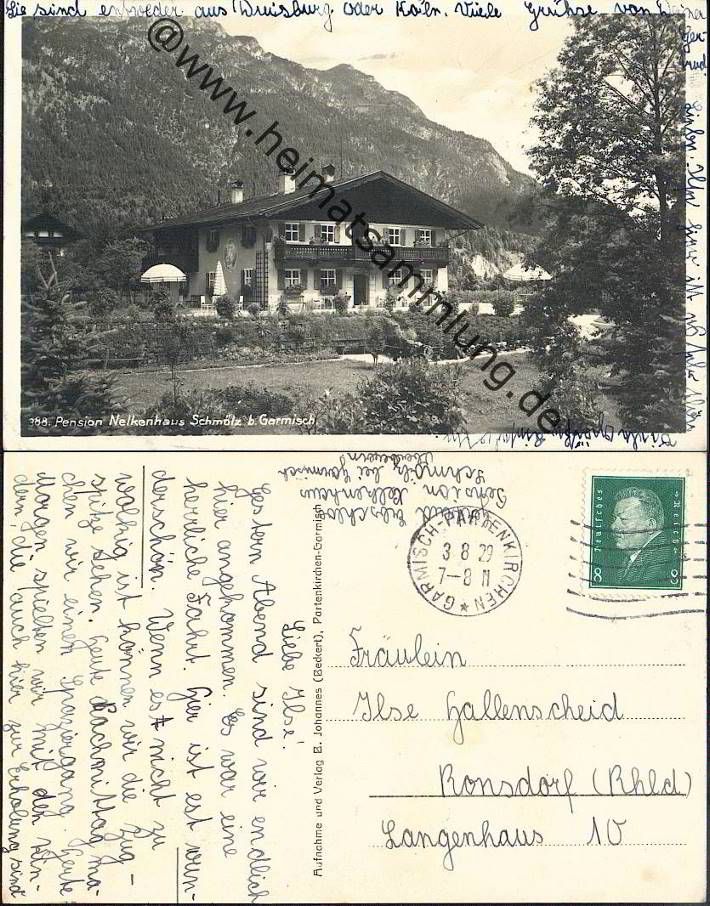 Sie sind entweder aus Duisburg oder Köln. Viele Grüße von Deiner
Gertrud
@www.heimatsammlung.de
388. Pension Nelkenhaus Schmölz b. Garmisch.
Pension Nelkenhaus
Schmölz bei Garmisch
GARMISCH-PARTENKIRCHEN
3 8 29
7-8 N
Deutsches Reich
8 8
Aufnahme und Verlag B. Johannes (Beckert), Partenkirchen-Garmisch
Fräulein
Ilse Hallenscheid
Ronsdorf (Rhld)
Langenhaus 10
Liebe Ilse!
Gestern Abend sind wir endlich
hier angekommen. Es war eine
herrliche Fahrt. Hier ist est wun-
derschön. Wenn es nicht zu
wolkig ist können wir die Zug-
spitze sehen. Heute Nachmittag ma-
chen wir einen Spaziergang. Heute
Morgen spielten wir mit den Kin-
dern, die auch hier zur Erholung sind